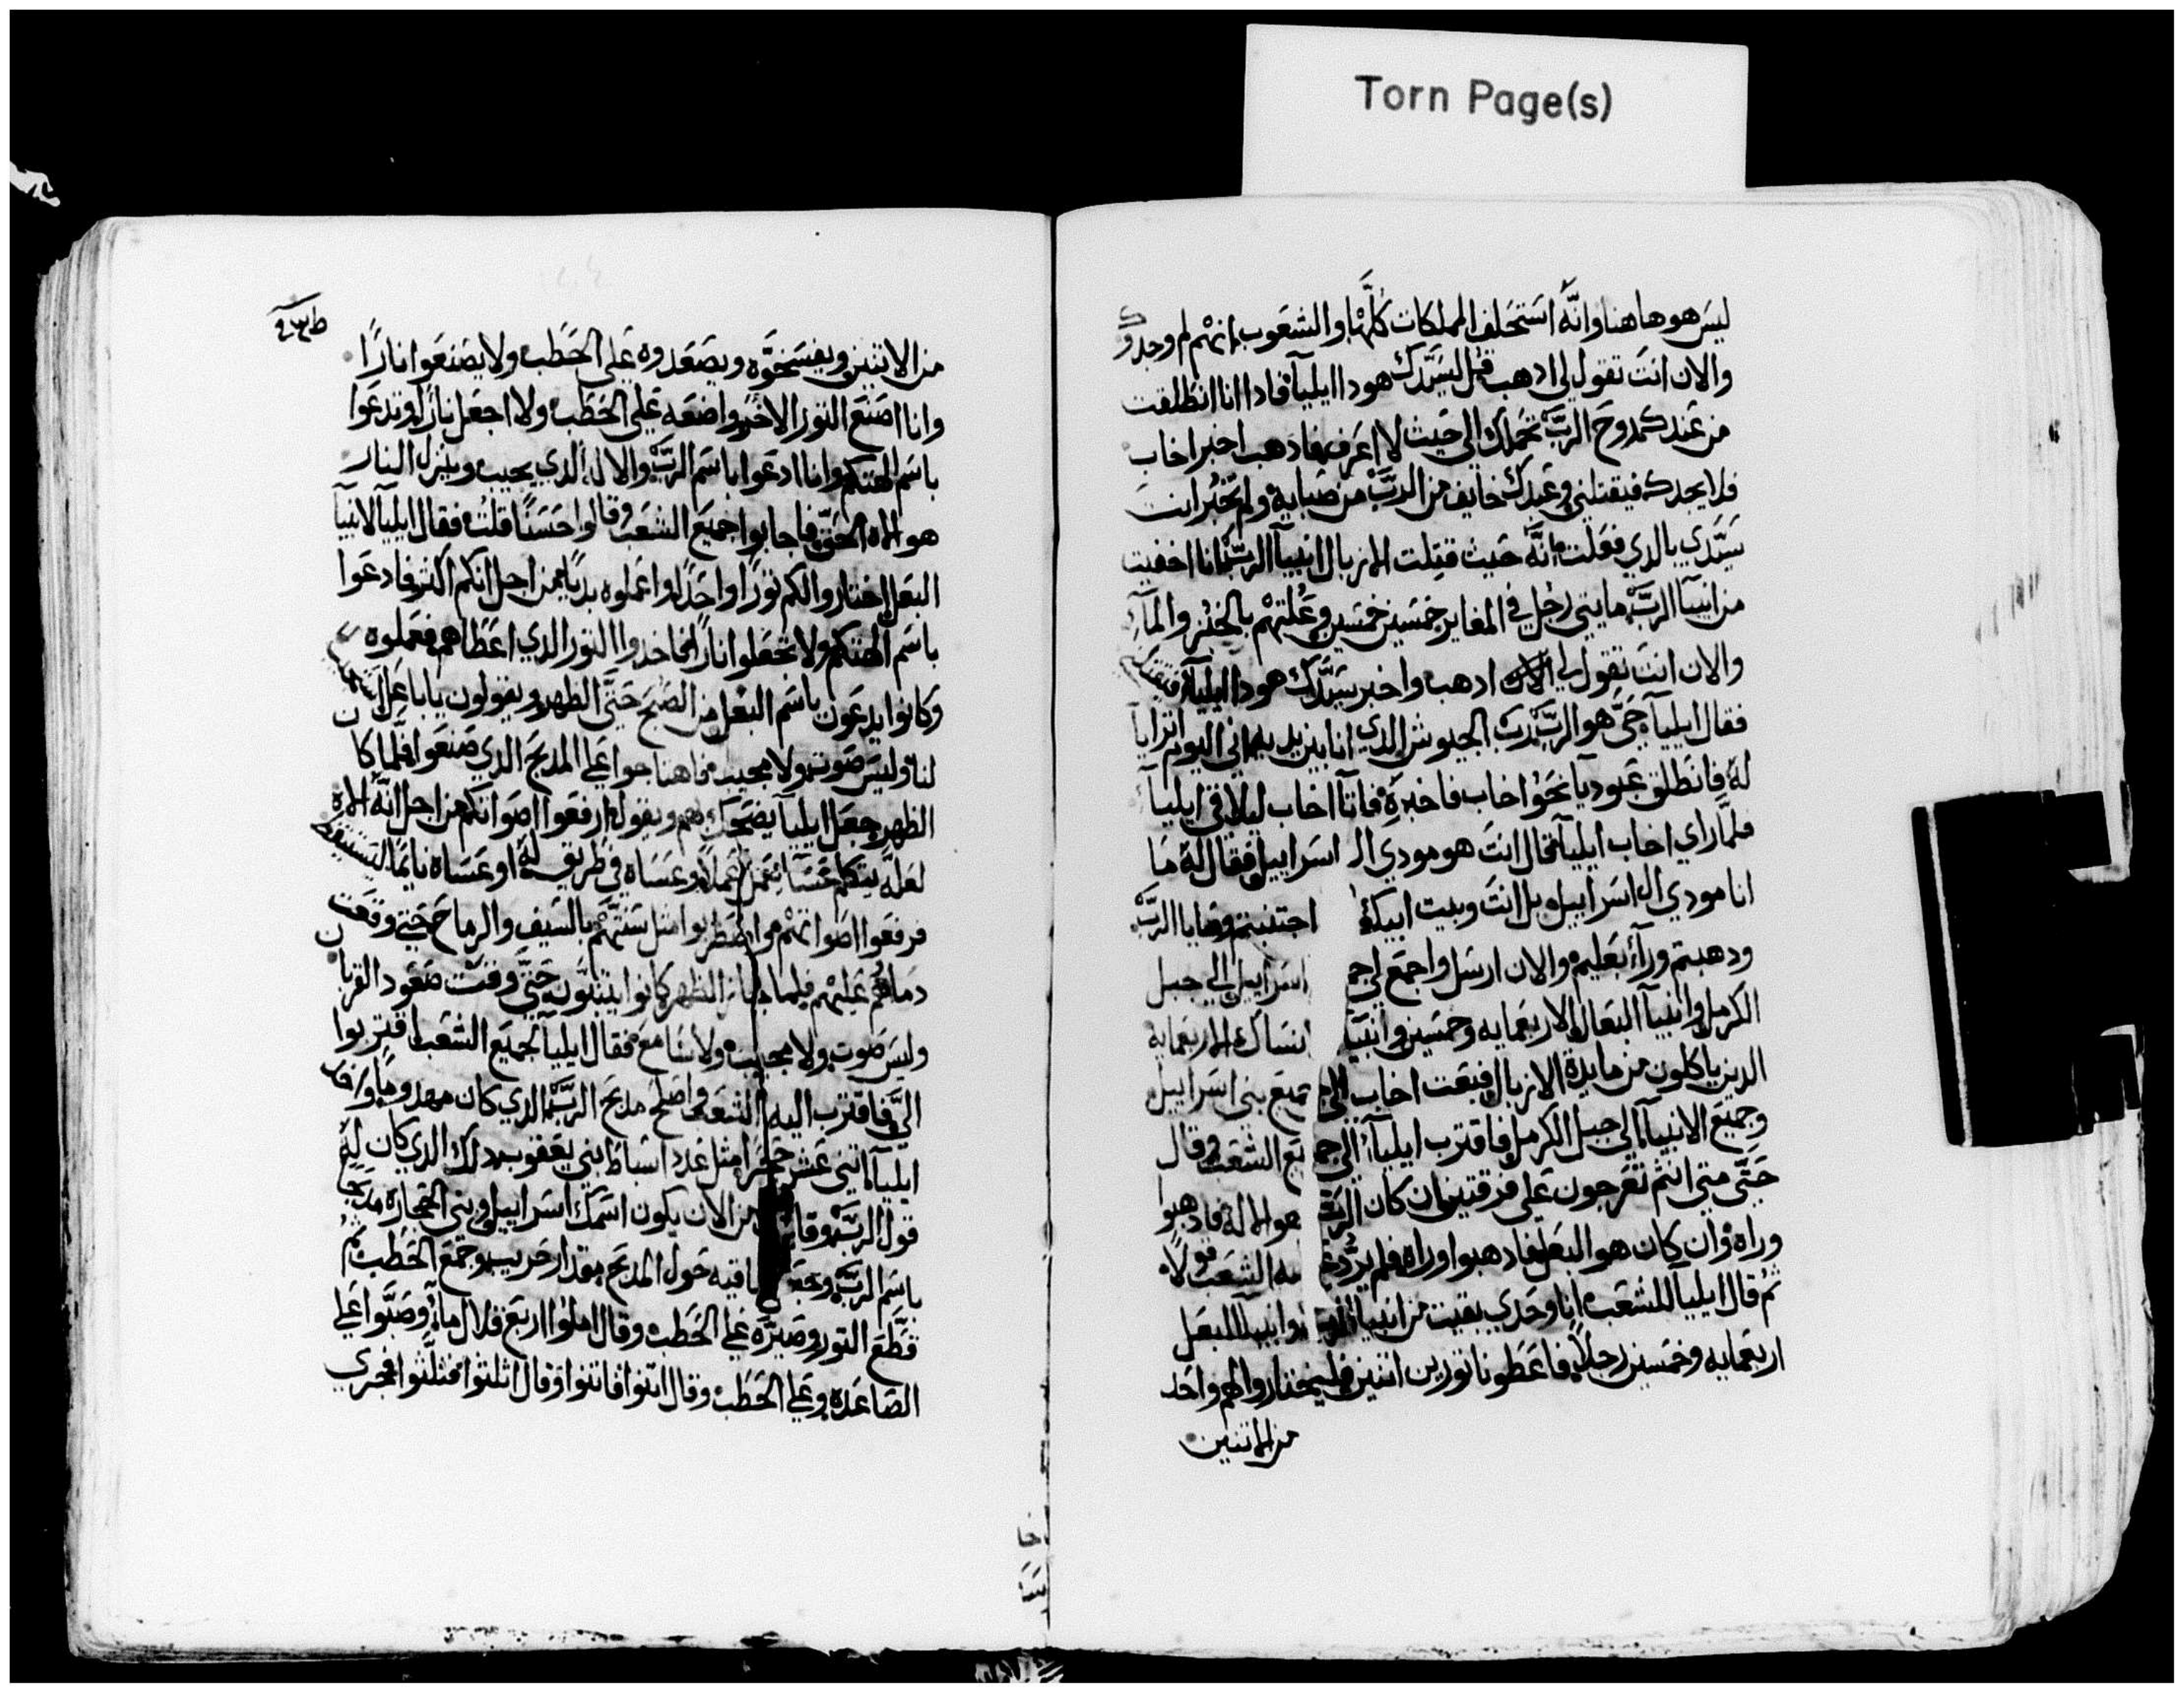 Torn Page(s)
ليس هو هاهنا وانه استحلف المملكات كلها والشعوب انهم لم وجدوك
والان انت تقول لي ادهب قل لسيدك هودا ايليا فادا انا انطلقت
من عندك روح الرب تحملك الي حيث لا اعرف فادهب اخبر اخاب
فلا يجدك فيقتلني وعبدك خايف من الرب من صبايه ولم تخبر انت
سيدي بالدي فعلت انه حيث قتلت الازبال انبيا الرب انا اخفيت
من انبيا الرب مايتي رجل في المغاير خمسين خمسين وعلتهم بالخبز والمآ
والان انت تقول لي ادهب واخبر سيدك هودا ايليا فيقتلني
فقال ايليا حي هو الرب رب الجيوش الدي انا بين يديه اني اليوم اترايا
له فانطلق عبوديا نحو اخاب فاخبره فاتا اخاب ليلاقي ايليا
فلما راي اخاب ايليا قال انت هو مودي ال اسراييل فقال له ما
انا مودي ال اسراييل بل انت وبيت ابيك اجتنبتم وصايا الرب
ودهبتم ورآء بعليم والان ارسل واجمع لي اسراييل الي جبل
الكرمل وانبيآ البعال الاربعمايه وخمسين وانبيا انساك الاربعمايه
الدين ياكلون من مايدة الازبال فبعت اخاب الي جميع بني اسراييل
وجميع الانبيآ الي جبل الكرمل فاقترب ايليآ الي جميع الشعب وقال
حتي متي انتم تعرجون علي فرقتين ان كان الرب هو الاله فادهبوا
وراه وان كان هو البعل فادهبوا وراه فلم يرد الشعب قولا
ثم قال ايليا للشعب انا وحدي بقيت من انبيا وانبيا البعل
اربعمايه وخمسين رجلا فاعطونا تورين اتنين فليختاروا لهم واحد
من الاتنين
من الاتنين ويفسخوه ويصعدوه علي الحطب ولا يصنعوا نارا
وانا اصنع التور الاخر واضعه علي الحطب ولا اجعل نارا وتدعوا
باسم الهتكم وانا ادعوا باسم الرب والاله الدي يجيب وينزل النار
هو الاه الحق فاجابوا جميع الشعب وقالوا حسنا قلت فقال ايليا لانبيا
البعل اختاروا لكم تورا واحدا واعملوه بديا من اجل انكم اكتر فادعوا
باسم الهتكم ولا تجعلوا نارا فاخدوا التور الدي اعطاهم فعملوه
وكانوا يدعون باسم البعل من الصبح حتي الظهر ويقولون ياباعل استجيب
لنا وليس صوت ولا مجيب فاهتاجوا علي المدبح الدي صنعوا فلما كان
الظهر جعل ايليا يضحك بهم ويقول ارفعوا اصواتكم من اجل انه الاه
لعله يتكلم عسا يعمل عملا وعساه في طريق له او عساه نايما ليستيقظ
فرفعوا اصواتهم واضطربوا مثل سنتهم بالسيف والرماح حتي وقعت
دماهم عليهم فلما جاز الظهر كانوا يتنبون حتي وقت صعود القربان
وليس صوت ولا مجيب ولا سامع فقال ايليا لجميع الشعب اقتربوا
الي فاقترب اليه الشعب واصلح مدبح الرب الدي كان مهدوما واخد
ايليا اتني عشر حجرا مثل عدد اسباط بني يعقوب دلك الدي كان له
قول الرب وقال من الان يكون اسمك اسراييل وبني الحجاره مدبحا
باسم الرب ساقيه حول المدبح مقدار حريب وجمع الحطب ثم
قطع التور وصيره علي الحطب وقال املوا اربع قلال مآ وصبوا علي
الصاعده وعلي الحطب وقال اتنوا فاتنوا وقال اثلثوا فثلثوا فجري